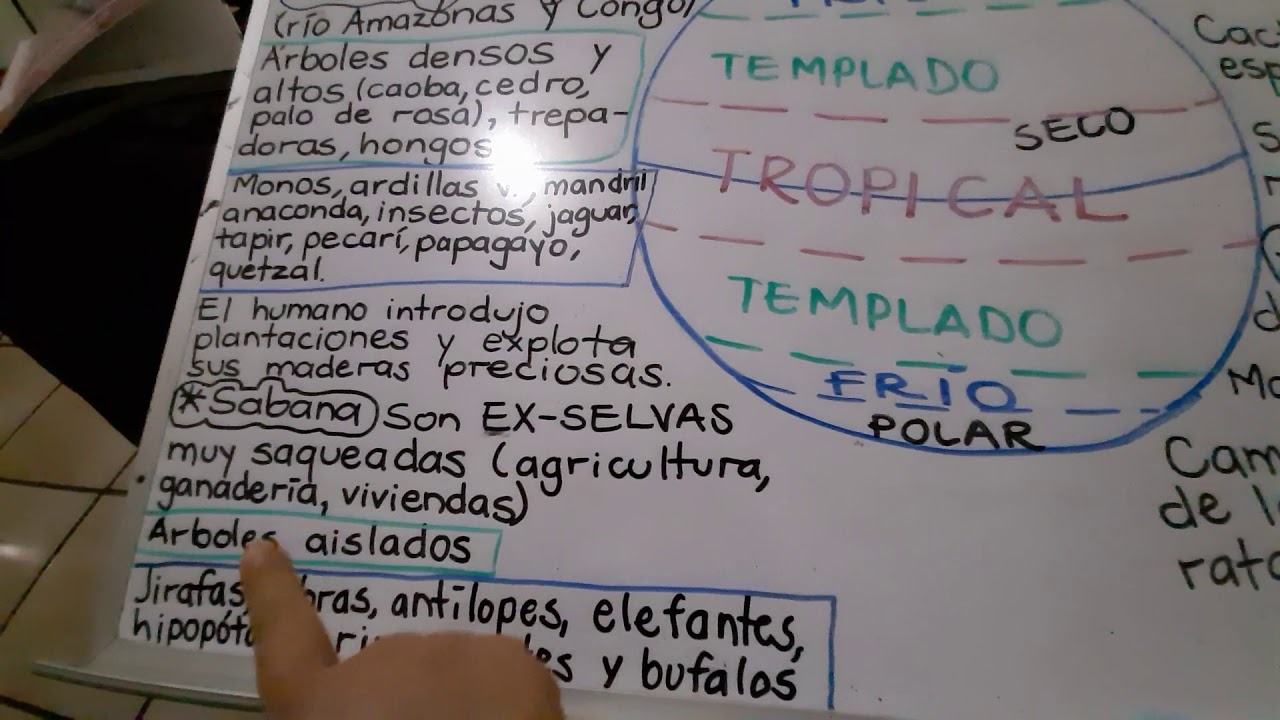 (río Amazonas y Congo)
Árboles densos y
altos (caoba, cedro,
palo de rosa), trepa-
doras, hongos
Monos, ardillas v., mandril
anaconda, insectos, jaguar,
tapir, pecarí, papagayo,
quetzal.
El humano introdujo
plantaciones y explota
sus maderas preciosas.
*Sabana Son EX-SELVAS
muy saqueadas (agricultura,
ganadería, viviendas)
Arboles aislados
Jirafas, antílopes, elefantes,
y bufalos
TEMPLADO
SECO
TROPICAL
TEMPLADO
FRÍO
POLAR